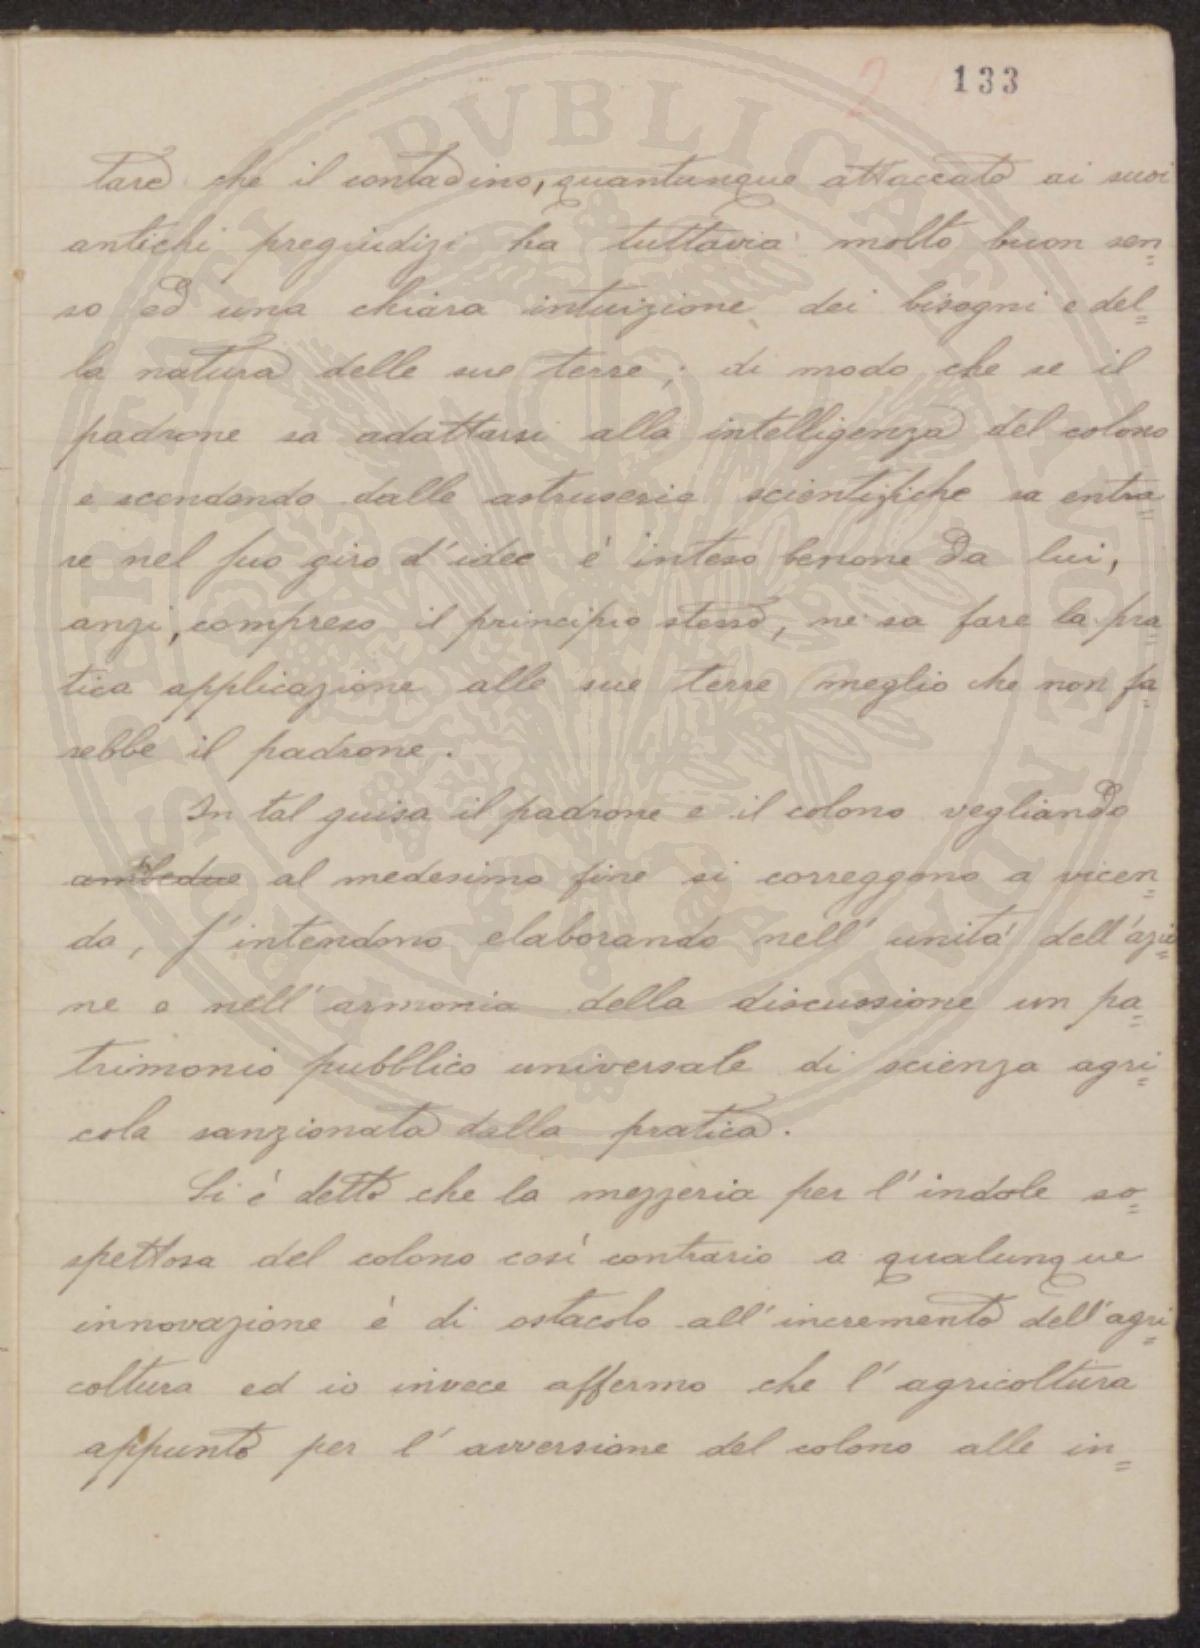 2 133
tare che il contadino, quantunque attaccato ai suoi
antichi pregiudizi ha tuttavia molto buon sen=
so ed una chiara intuizione dei bisogni e del=
la natura delle sue terre; di modo che se il
padrone sa adattarsi alla intelligenza del colono
e scendendo dalle astruserie scientifiche sa entra=
re nel suo giro d'idee è inteso benone da lui,
anzi, compreso il principio stesso, ne sa fare la pra=
tica applicazione alle sue terre meglio che non fa=
rebbe il padrone.
In tal guisa il padrone e il colono vegliando
ambedue al medesimo fine si correggono a vicen=
da, s'intendono elaborando nell'unità dell'azio=
ne e nell'armonia della discussione un pa=
trimonio pubblico universale di scienza agri=
cola sanzionata dalla pratica.
Si è detto che la mezzeria per l'indole so=
spettosa del colono così contrario a qualunque
innovazione è di ostacolo all'incremento dell'agri=
coltura ed io invece affermo che l'agricoltura
appunto per l'avversione del colono alle in=